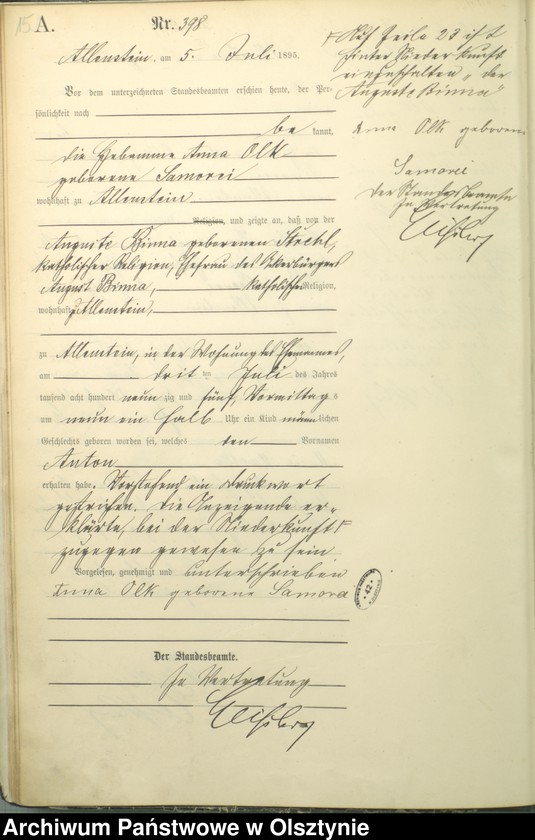 15 A.
Nr. 398
Allenstein, am 5. Juli 1895.
Vor dem unterzeichneten Standesbeamten erschien heute, der Per-
sönlichkeit nach
be kannt,
die Hebamme Anna Olk
geborene Samorei
wohnhaft zu Allenstein
Religion, und zeigte an, daß von der
Auguste Binna geborenen Strehl,
katholischer Religion, Ehefrau des Ackerbürgers
August Binna, katholischer Religion,
wohnhaft zu Allenstein,
zu Allenstein, in der Wohnung des Ehemannes,
am dritten Juli des Jahres
tausend acht hundert neunzig und fünf, Vormittags
um neun ein halb Uhr ein Kind männlichen
Geschlechts geboren worden sei, welches den Vornamen
Anton
erhalten habe. Vorstehend ein Druckwort
gestrichen. Die Anzeigende er-
klärte, bei der Niederkunft
zugegen gewesen zu sein
Vorgelesen, genehmigt und unterschrieben
Anna Olk geborene Samorei
Der Standesbeamte.
In Vertretung
Zeile 23 ist
hinter Niederkunft
einzuschalten „der
Auguste Binna"
Anna Olk geborene
Samorei
Der Standesbeamte
In Vertretung
42
Archiwum Państwowe w Olsztynie